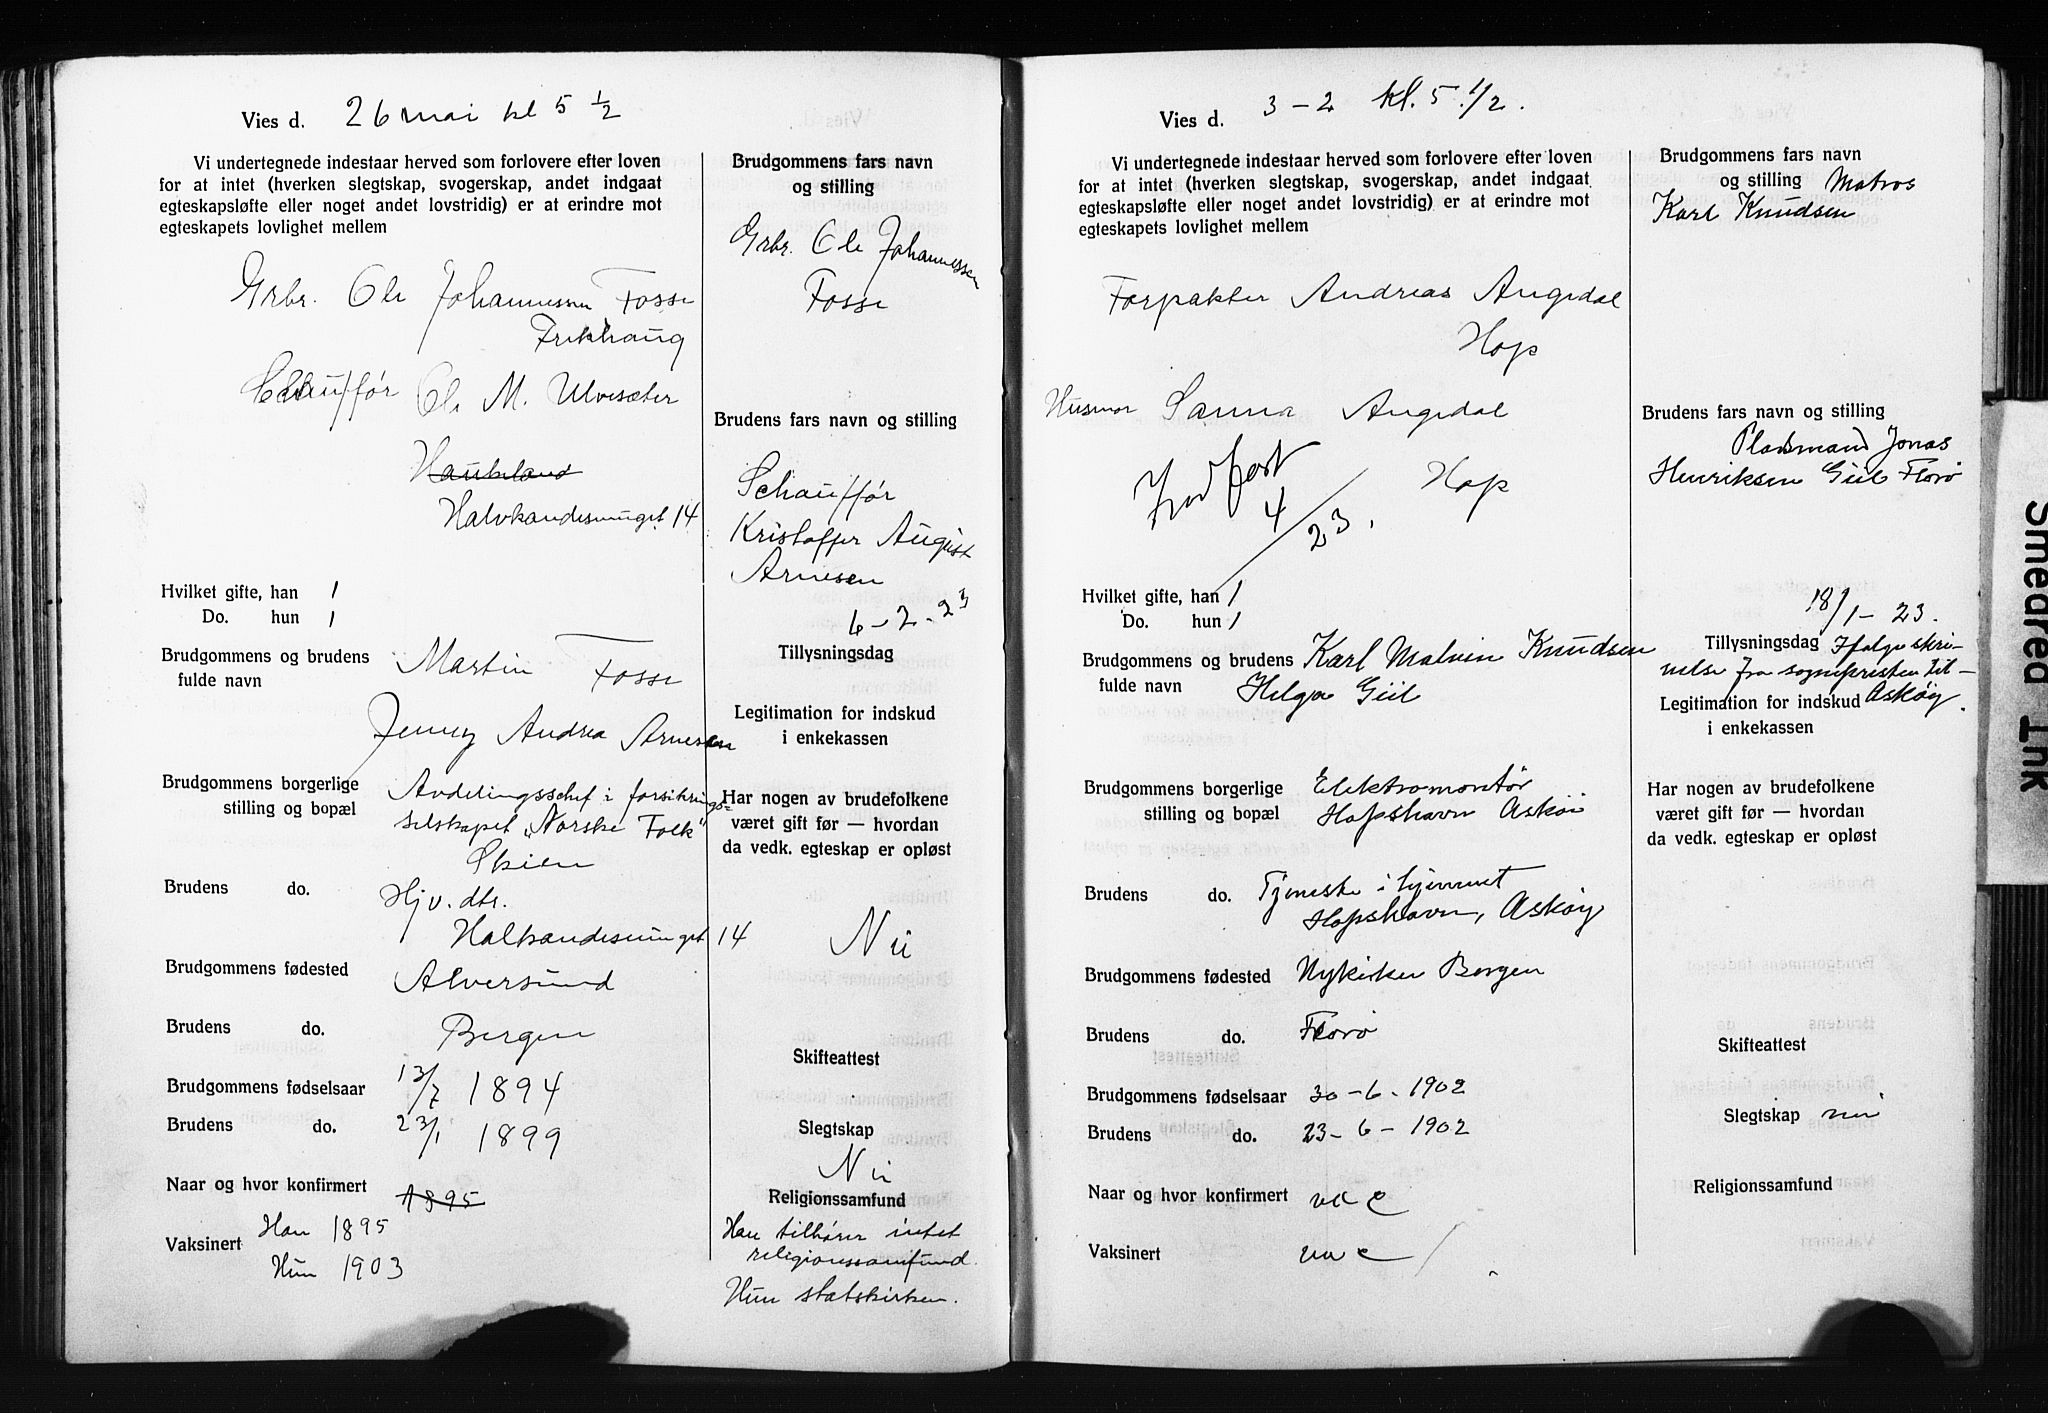 Vies d. 26 mai kl 5 1/2
Vi undertegnede indestaar herved som forlovere efter loven
for at intet (hverken slegtskap, svogerskap, andet indgaat
egteskapsløfte eller noget andet lovstridig) er at erindre mot
egteskapets lovlighet mellem
Grbr. Ole Johannessen Fosse
Frekhaug
Schauffør Ole M. Ulvesæter
Haukeland
Halvkandesmuget 14
Hvilket gifte, han 1
Do. hun 1
Brudgommens og brudens Martin Fosse
fulde navn
Jenny Andrea Arnesen
Brudgommens borgerlige Avdelingschef i forsikrings-
stilling og bopæl selskapet "Norske Folk"
Skien
Brudens do. Hjv. dtr.
Halkandesmuget 14
Brudgommens fødested Alversund
Brudens do. Bergen
Brudgommens fødselsaar 13/7 1894
Brudens do. 23/1 1899
Naar og hvor konfirmert 1895
Han 1895
Vaksinert
Hun 1903
Brudgommens fars navn
og stilling
Grbr. Ole Johannessen
Fosse
Brudens fars navn og stilling
Schauffør
Kristoffer August
Arnesen
6-2-23
Tillysningsdag
Legitimation for indskud
i enkekassen
Har nogen av brudefolkene
været gift før — hvordan
da vedk. egteskap er opløst
Nei
Skifteattest
Slegtskap
Nei
Religionssamfund
Han tilhører intet
religionssamfund.
Hun statskirken.
Vies d. 3-2 kl. 5 1/2.
Vi undertegnede indestaar herved som forlovere efter loven
for at intet (hverken slegtskap, svogerskap, andet indgaat
egteskapsløfte eller noget andet lovstridig) er at erindre mot
egteskapets lovlighet mellem
Forpakter Andreas Angedal
Hop
Husmor Sanna Angedal
Hop
4/23.
Hvilket gifte, han 1
Do. hun 1
Brudgommens og brudens Karl Malvin Knudsen
fulde navn Helga Giil
Brudgommens borgerlige Elektromontør
stilling og bopæl Hopshavn Askøi
Brudens do. Tjeneste i hjemmet
Hopshavn, Askøy
Brudgommens fødested Nykirken Bergen
Brudens do. Florø
Brudgommens fødselsaar 30-6-1902
Brudens do. 23-6-1902
Naar og hvor konfirmert
Vaksinert
Brudgommens fars navn
og stilling Matros
Karl Knudsen
Brudens fars navn og stilling
Pladsmand Jonas
Henriksen Giil Florø
18/1-23.
Tillysningsdag Ifølge skri-
velse fra sognepresten til
Legitimation for indskud Askøy.
i enkekassen
Har nogen av brudefolkene
været gift før — hvordan
da vedk. egteskap er opløst
Skifteattest
Slegtskap nei
Religionssamfund
Smedred Ink